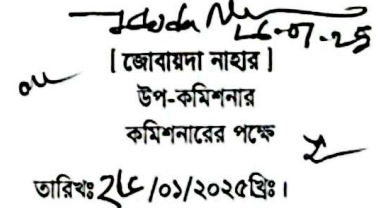 [ জোবায়দা নাহার ]
উপ-কমিশনার
কমিশনারের পক্ষে
তারিখঃ /০১/২০২৫খ্রিঃ।